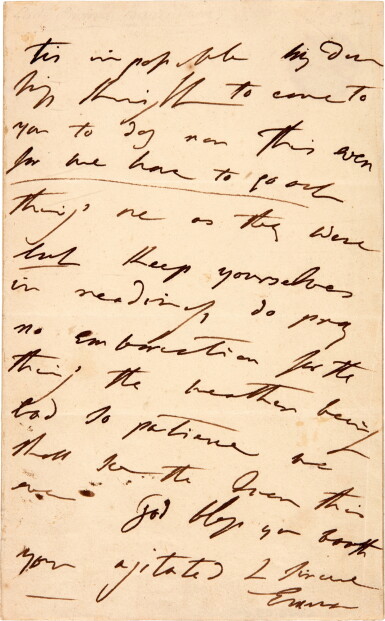 tis impossible my dear
Miss Knight to come to
you to day nor this even
for we have to go out
things are as they were
but keep yourselves
in readiness do pray
no embarcation for the
things the weather being
bad so patience we
shall see the Queen this
even God bless you both
your agitated & sincere
Emma